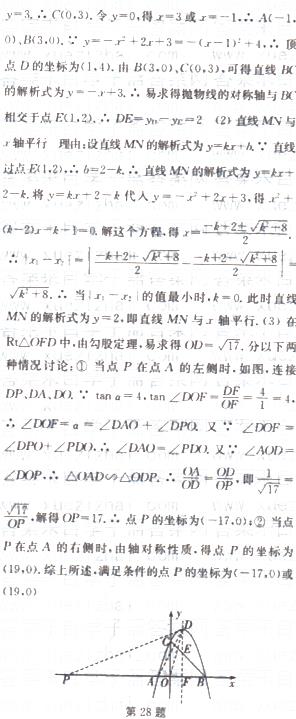 y=3.∴C(0,3).令y=0,得x=3或x=-1.∴A(-1,
0),B(3,0).∵y=-x²+2x+3=-(x-1)²+4,∴顶
点D的坐标为(1,4).由B(3,0)、C(0,3),可得直线BC
的解析式为y=-x+3.∴易求得抛物线的对称轴与BC
相交于点E(1,2).∴DE=y_D-y_E=2 (2)直线MN与
x轴平行 理由:设直线MN的解析式为y=kx+b.∵直线
过点E(1,2),∴b=2-k.∴直线MN的解析式为y=kx+
2-k.将y=kx+2-k代入y=-x²+2x+3,得x²+
(k-2)x-k-1=0.解这个方程,得x=(-k+2±√(k²+8))/2.
∵|x₁-x₂|=|(-k+2+√(k²+8))/2-(-k+2-√(k²+8))/2|=
√(k²+8).∴当|x₁-x₂|的值最小时,k=0.此时直线
MN的解析式为y=2,即直线MN与x轴平行.(3)在
Rt△OFD中,由勾股定理,易求得OD=√17.分以下两
种情况讨论:①当点P在点A的左侧时,如图,连接
DP、DA、DO.∵tan α=4,tan∠DOF=DF/OF=4/1=4,
∴∠DOF=α=∠DAO+∠DPO.又∵∠DOF=
∠DPO+∠PDO,∴∠DAO=∠PDO.又∵∠AOD=
∠DOP,∴△OAD∽△ODP.∴OA/OD=OD/OP,即1/√17=
√17/OP,解得OP=17.∴点P的坐标为(-17,0);②当点
P在点A的右侧时,由轴对称性质,得点P的坐标为
(19,0).综上所述,满足条件的点P的坐标为(-17,0)或
(19,0)
y
D
C
E
P
A
O
F
B
x
第28题